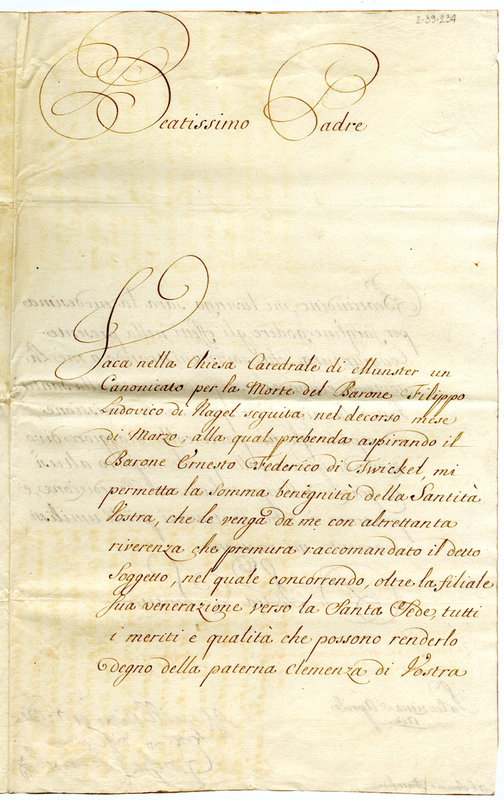 2-39-234
Beatissimo Padre
Vaca nella Chiesa Catedrale di Munster un
Canonicato per la Morte del Barone Filippo
Ludovico di Nagel seguita nel decorso mese
di Marzo, alla qual prebenda aspirando il
Barone Ernesto Federico di Twickel, mi
permetta la somma benegnità della Santità
Vostra, che le venga da me con altrettanta
riverenza che premura raccomandato il detto
Soggetto, nel quale concorrendo, oltre la filiale
sua venerazione verso la Santa Sede, tutti
i meriti e qualità che possono renderlo
degno della paterna clemenza di Vostra